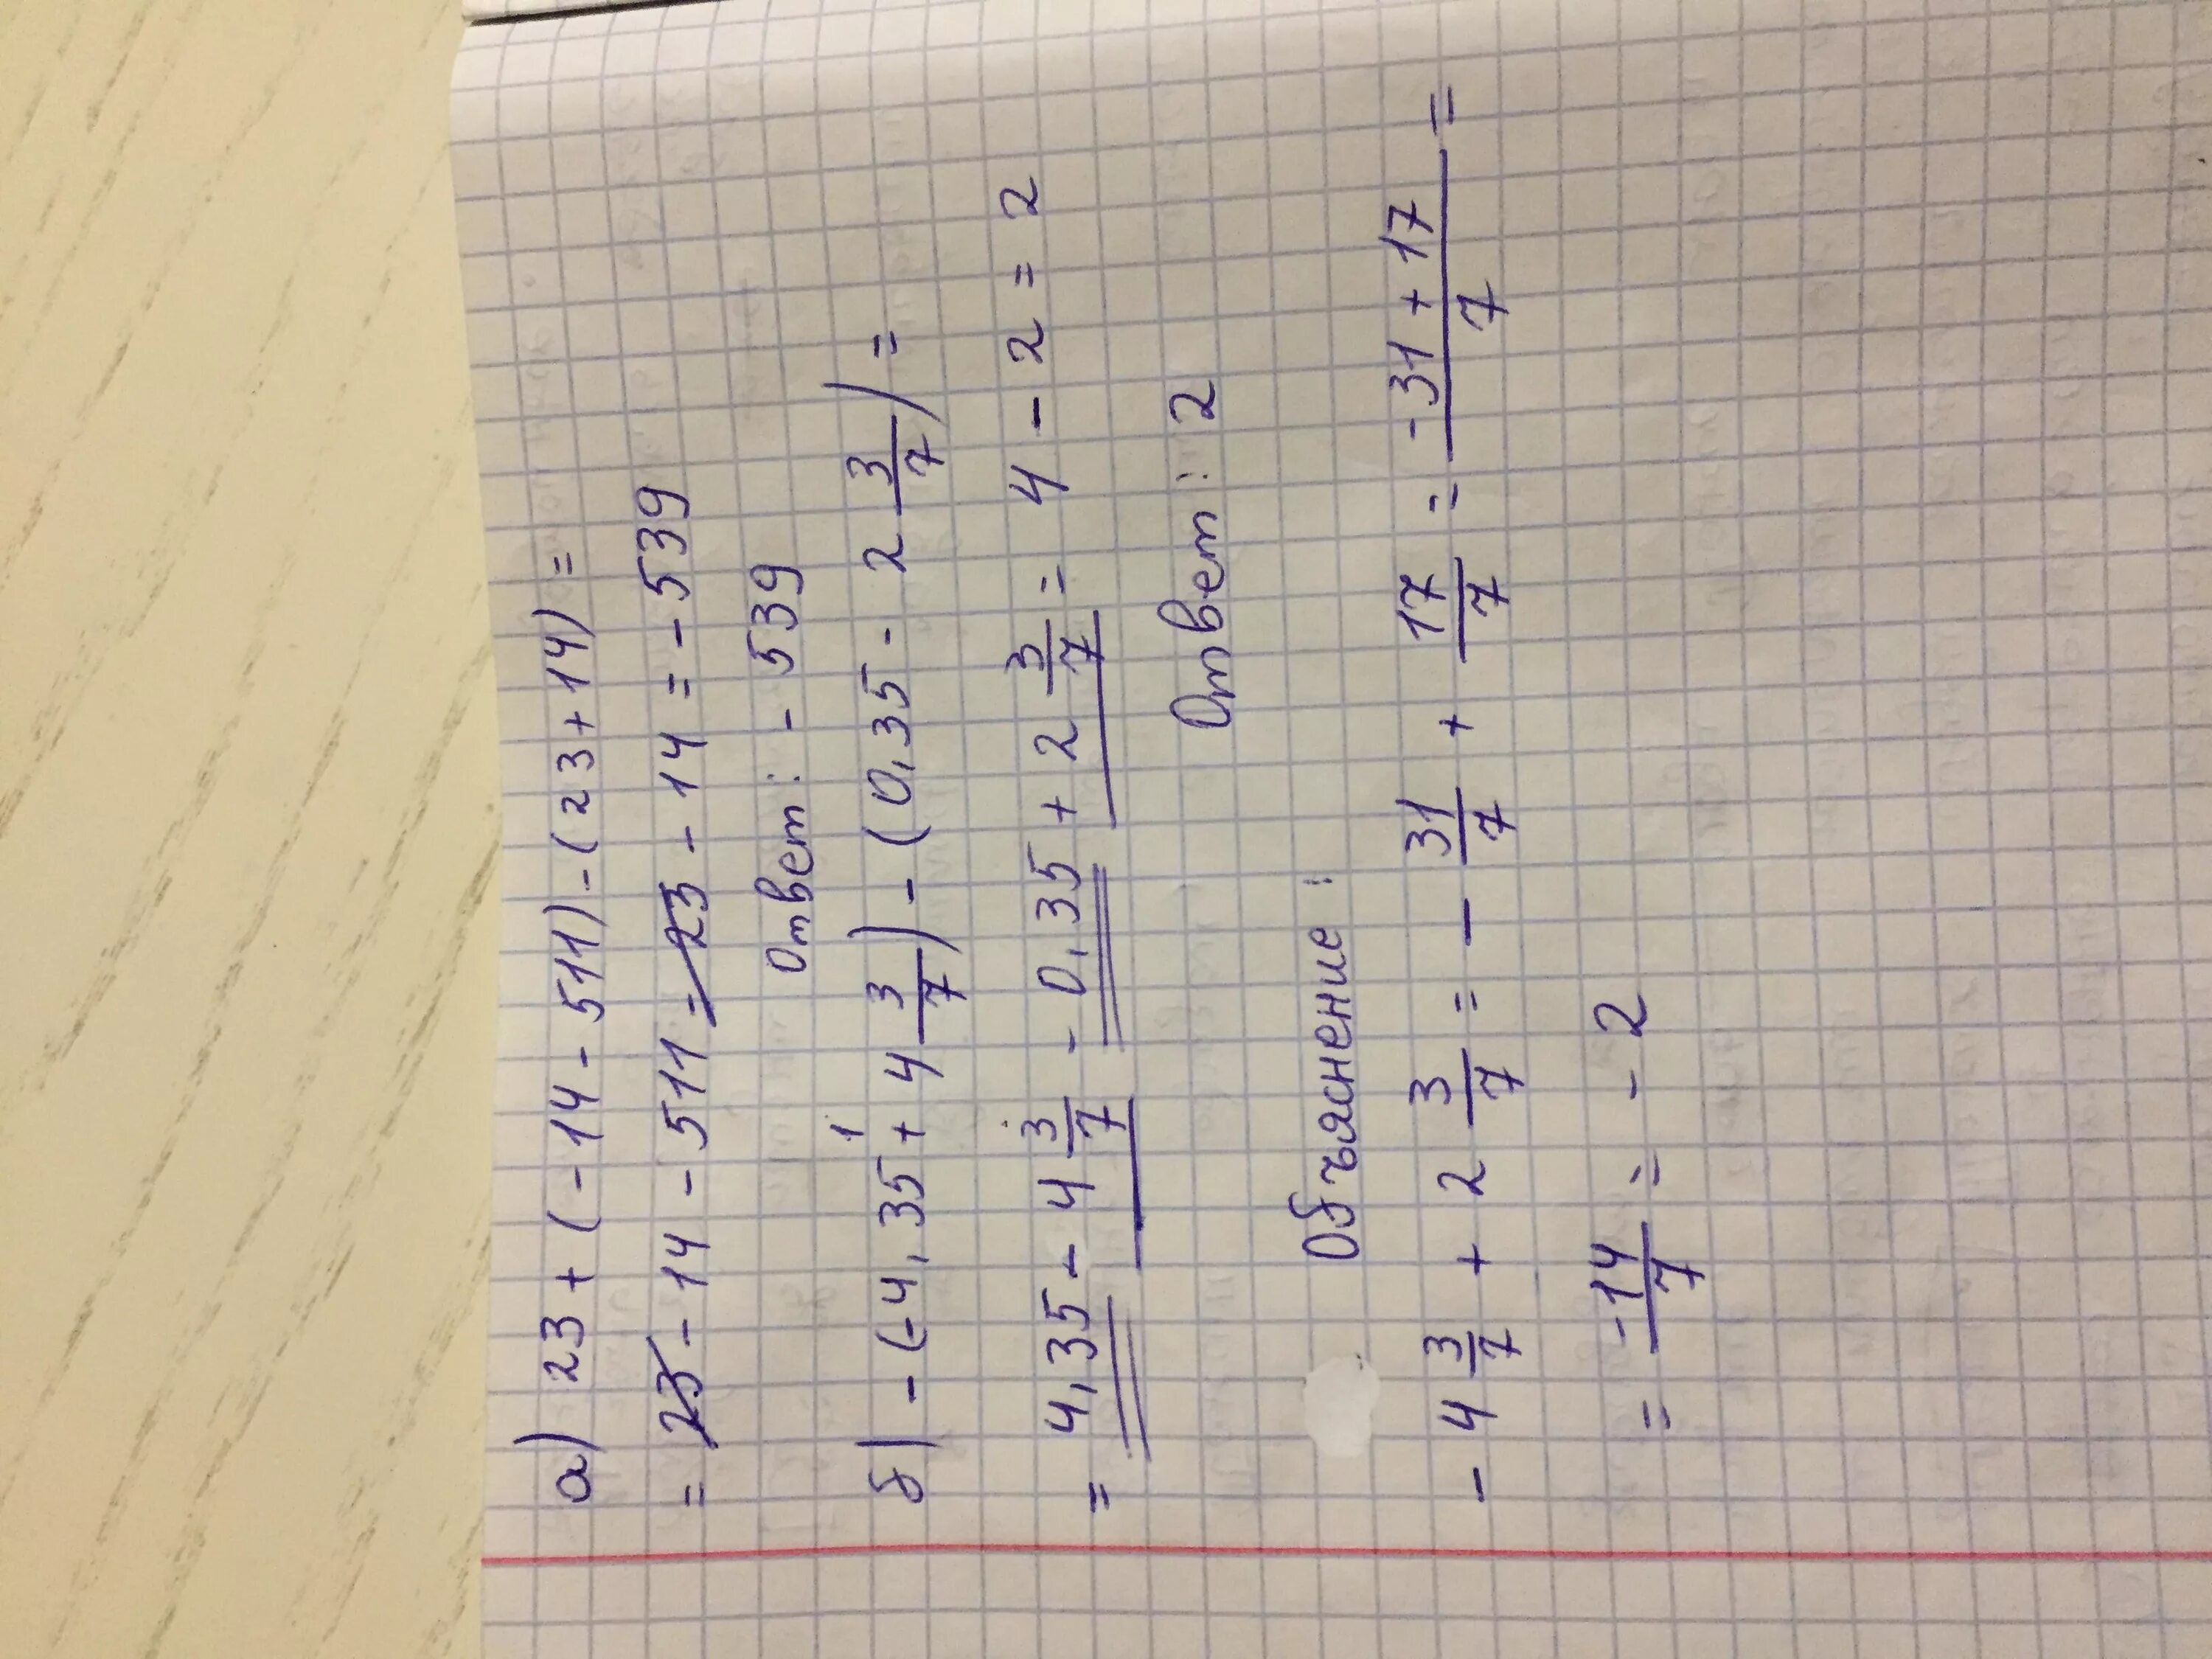 а) 23 + (-14 - 511) - (23 + 14) =
= 23 - 14 - 511 - 23 - 14 = - 539
Ответ: - 539
б) - (-4,35 + 4 3/7) - (0,35 - 2 3/7) =
= 4,35 - 4 3/7 - 0,35 + 2 3/7 = 4 - 2 = 2
Ответ: 2
Объяснение:
- 4 3/7 + 2 3/7 = - 31/7 + 17/7 = (-31 + 17)/7 =
= -14/7 = - 2